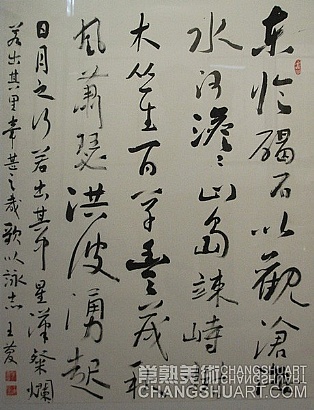 東臨碣石以觀滄海
水何澹々山島竦峙樹
木丛生百草豊茂秋
風蕭瑟洪波湧起
日月之行若出其中星漢粲爛
若出其里幸甚至哉歌以詠志 王
常熟美術 CHANGSHUART
CHANGSHUART.COM